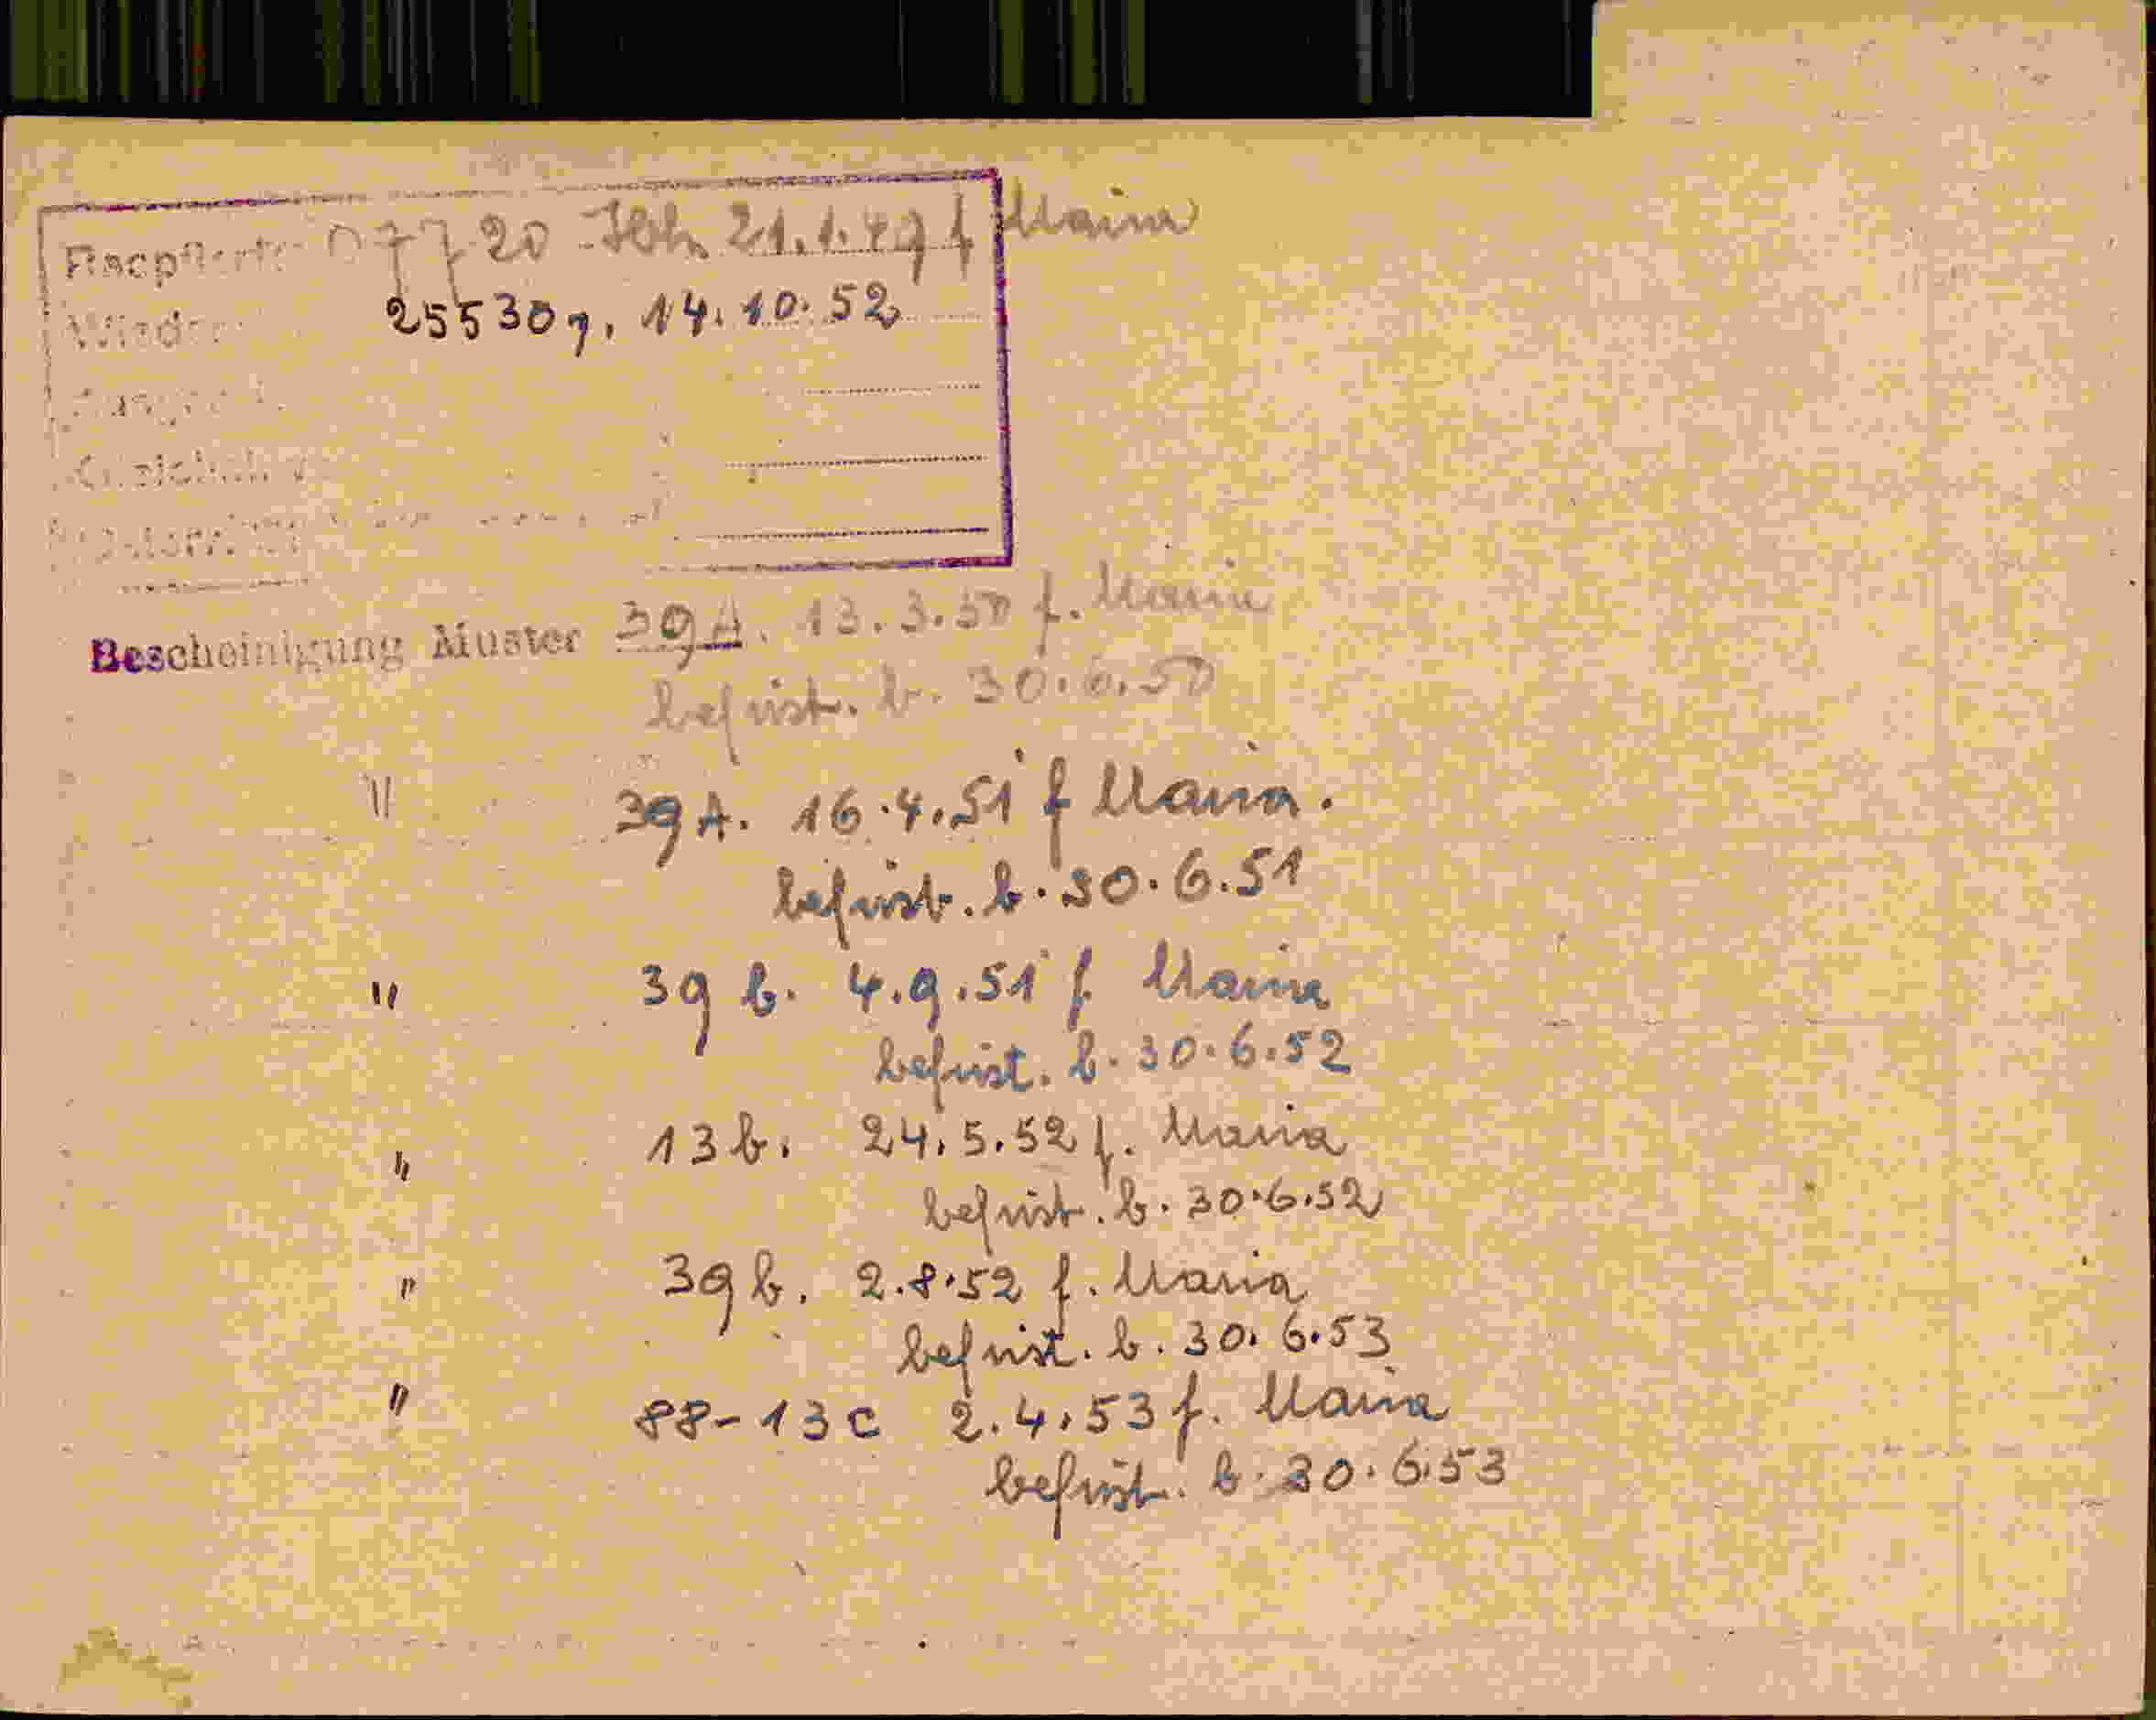 07720 21.1.49 f Maria
255307, 14.10.52
Bescheinigung Muster 39A. 13.3.50 f. Maria
befrist. b. 30.6.50
" 39A. 16.4.51 f Maria.
befrist. b. 30.6.51
" 39 b. 4.9.51 f. Maria
befrist. b. 30.6.52
" 13 b. 24.5.52 f. Maria
befrist. b. 30.6.52
" 39 b. 2.8.52 f. Maria
befrist. b. 30.6.53
" 88-13c 2.4.53 f. Maria
befrist. b. 30.6.53